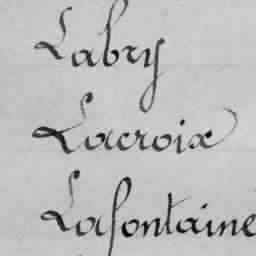 Labry
Lacroix
Lafontaine